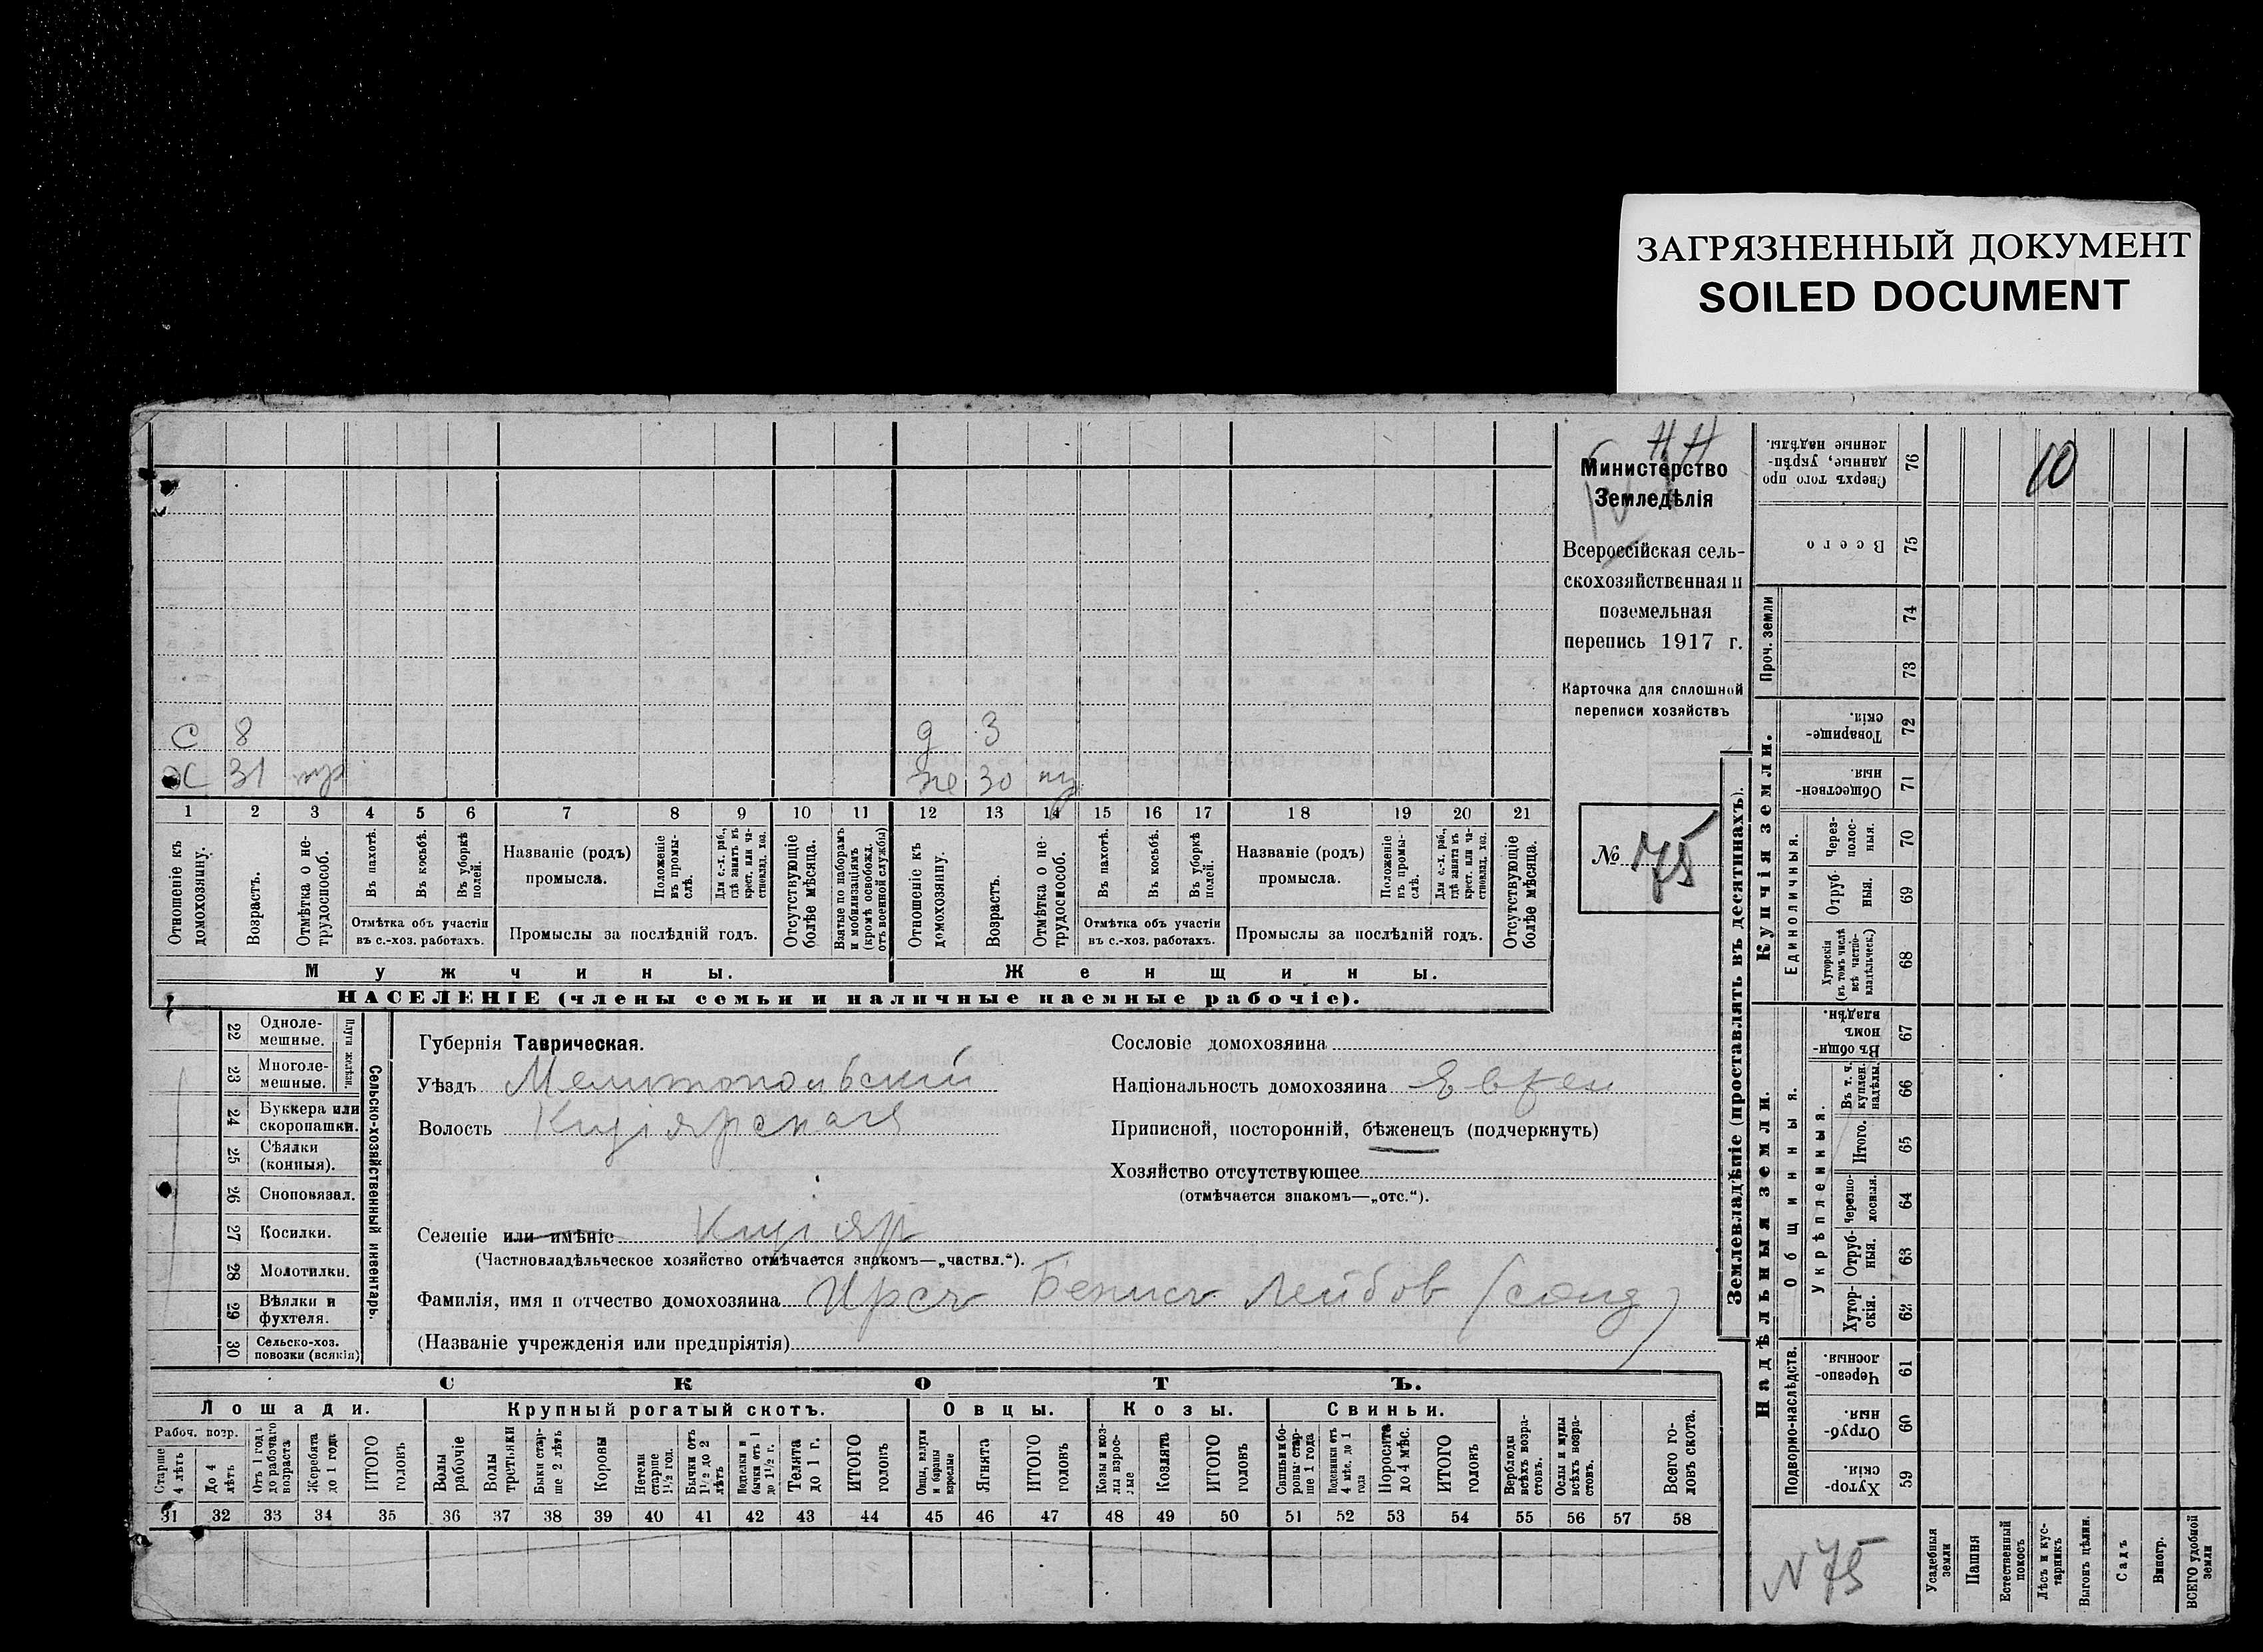 ЗАГРЯЗНЕННЫЙ ДОКУМЕНТ
SOILED DOCUMENT
Министерство
Земледѣлія
Всероссійская сель-
скохозяйственная и
поземельная
перепись 1917 г.
Карточка для сплошной
переписи хозяйствъ
№ 75
с 8
д 3
х 31
же 30
1 2 3 4 5 6 7 8 9 10 11 12 13 14 15 16 17 18 19 20 21
Отношеніе къ домохозяину.
Возрастъ.
Отмѣтка о не-трудоспособ.
Въ пахотѣ.
Въ косьбѣ.
Въ уборкѣ полей.
Отмѣтка объ участіи
въ с.-хоз. работахъ.
Названіе (родъ)
промысла.
Положеніе въ промы-слѣ.
Для с.-х. раб., гдѣ занятъ въ крест. или ча-стновлад. хоз.
Промыслы за послѣдній годъ.
Отсутствующіе болѣе мѣсяца.
Взятые по наборамъ и мобилизаціямъ (кромѣ освобожд. отъ военной службы)
Отношеніе къ домохозяину.
Возрастъ.
Отмѣтка о не-трудоспособ.
Въ пахотѣ.
Въ косьбѣ.
Въ уборкѣ полей.
Отмѣтка объ участіи
въ с.-хоз. работахъ.
Названіе (родъ)
промысла.
Положеніе въ промы-слѣ.
Для с.-х. раб., гдѣ занятъ въ крест. или ча-стновлад. хоз.
Промыслы за послѣдній годъ.
Отсутствующіе болѣе мѣсяца.
Мужчины. Женщины.
НАСЕЛЕНІЕ (члены семьи и наличные наемные рабочіе).
22 Однолемешные.
23 Многолемешные.
Плуги желѣзн.
24 Буккера или скоропашки.
25 Сѣялки (конныя).
26 Сноповязал.
27 Косилки.
28 Молотилки.
29 Вѣялки и фухтеля.
30 Сельско-хоз. повозки (всякія)
Сельско-хозяйственный инвентарь.
Губернія Таврическая.
Уѣздъ Мелитопольскій
Волость Кизіярская
Сословіе домохозяина
Національность домохозяина Еврей
Приписной, посторонній, бѣженецъ (подчеркнуть)
Хозяйство отсутствующее
(отмѣчается знакомъ—„отс.“).
Селеніе или имѣніе Кизіяр
(Частновладѣльческое хозяйство отмѣчается знакомъ—„частвл.“).
Фамилія, имя и отчество домохозяина Ирсъ Бенис Лейбов (солд)
(Названіе учрежденія или предпріятія)
СКОТЪ.
Лошади. Крупный рогатый скотъ. Овцы. Козы. Свиньи.
Рабоч. возр.
Старше 4 лѣтъ
До 4 лѣтъ
Отъ 1 года до рабочаго возраста
Жеребята до 1 года
ИТОГО головъ
Волы рабочіе
Волы третьяки
Быки стар-ше 2 лѣтъ
Коровы
Нетели старше 1½ год.
Бычки отъ 1½ до 2 лѣтъ
Подтелки и бычки отъ 1 до 1½ г.
Телята до 1 г.
ИТОГО головъ
Овцы, валухи и бараны взрослые
Ягнята
ИТОГО головъ
Козы и коз-лы взрос-лые
Козлята
ИТОГО головъ
Свиньи и бо-ровы стар-ше 1 года
Подсвинки отъ 4 мѣс. до 1 года
Поросята до 4 мѣс.
ИТОГО головъ
Верблюды всѣхъ возра-стовъ.
Ослы и мулы всѣхъ возра-стовъ.
Всего го-ловъ скота.
31 32 33 34 35 36 37 38 39 40 41 42 43 44 45 46 47 48 49 50 51 52 53 54 55 56 57 58
Землевладѣніе (проставлять въ десятинахъ).
10
Сверхъ того про-данные, укрѣп-ленные надѣлы. 76
Всего 75
Проч. земли 74 73
Купчія земли.
Товарище-скія. 72
Обществен-ныя 71
Единоличныя.
Через-полос-ныя. 70
Отруб-ныя. 69
Хуторскія (въ томъ числѣ всѣ частно-владѣльческ.) 68
Надѣльныя земли.
Общинныя.
Въ общин-номъ владѣн. 67
Укрѣпленныя.
Въ т. ч. куплен. надѣлы. 66
Итого. 65
Черезпо-лосныя. 64
Отруб-ныя. 63
Хутор-скія. 62
Подворно-наслѣдств.
Черезпо-лосныя. 61
Отруб-ныя. 60
Хутор-скія. 59
N 75
Усадебныя земли
Пашня
Естественный покосъ
Лѣсъ и кус-тарникъ
Выгонъ цѣлин.
Садъ
Виногр.
ВСЕГО удобной земли